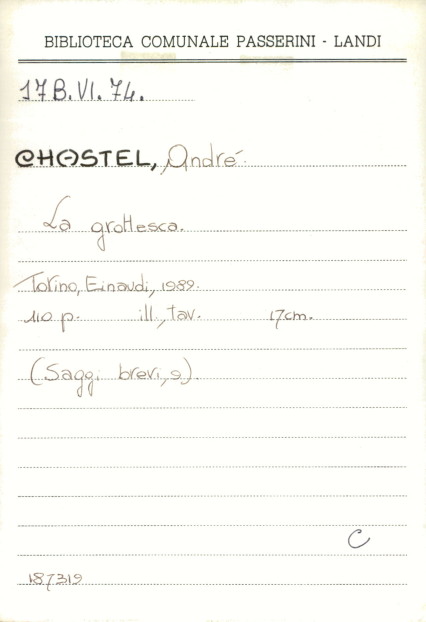 BIBLIOTECA COMUNALE PASSERINI - LANDI
17B.VI.74.
CHASTEL, André.
La grottesca.
Torino, Einaudi, 1989.
110 p. ill., tav. 17cm.
(Saggi brevi, 9).
C
187319